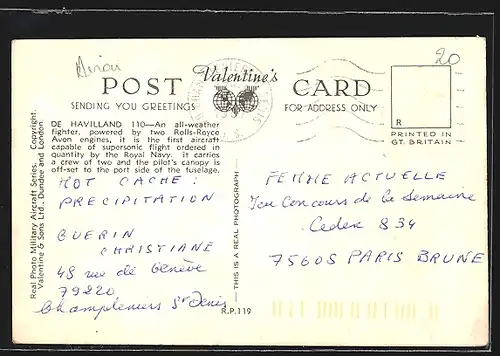 Avion
20
POST Valentine's CARD
SENDING YOU GREETINGS
FOR ADDRESS ONLY
R
PRINTED IN
GT. BRITAIN
DE HAVILLAND 110—An all-weather
fighter, powered by two Rolls-Royce
Avon engines, it is the first aircraft
capable of supersonic flight ordered in
quantity by the Royal Navy. It carries
a crew of two and the pilot's canopy is
off-set to the port side of the fuselage.
Real Photo Military Aircraft Series. Copyright.
Valentine & Sons Ltd., Dundee and London.
MOT CACHE :
PRECIPITATION
GUERIN
CHRISTIANE
48 rue de Genève
79220
Champleniers St Denis
THIS IS A REAL PHOTOGRAPH
R.P.119
FEMME ACTUELLE
Jeu Concours de la Semaine
Cedex 834
75605 PARIS BRUNE